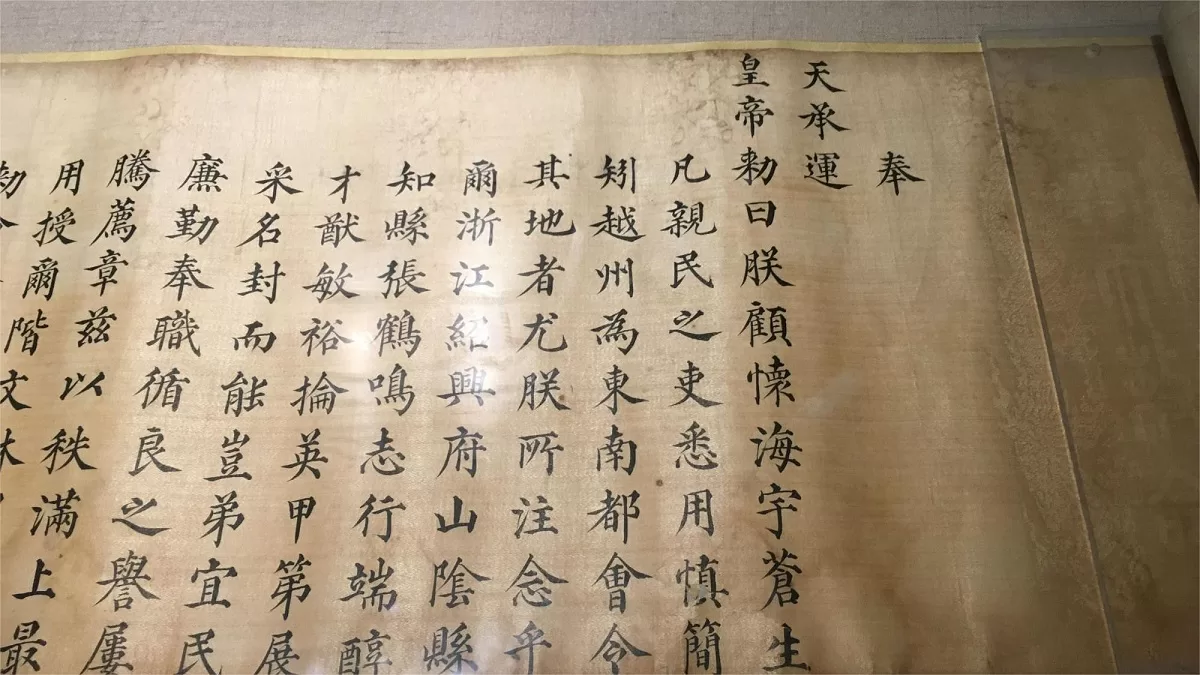 奉
天承運
皇帝勅曰朕顧懷海宇蒼生
凡親民之吏悉用慎簡
矧越州為東南都會令
其地者尤朕所注念乎
爾浙江紹興府山陰縣
知縣張鶴鳴志行端醇
才猷敏裕掄英甲第展
采名封而能豈弟宜民
廉勤奉職循良之譽屢
騰薦章茲以
用授爾階
秩滿上最